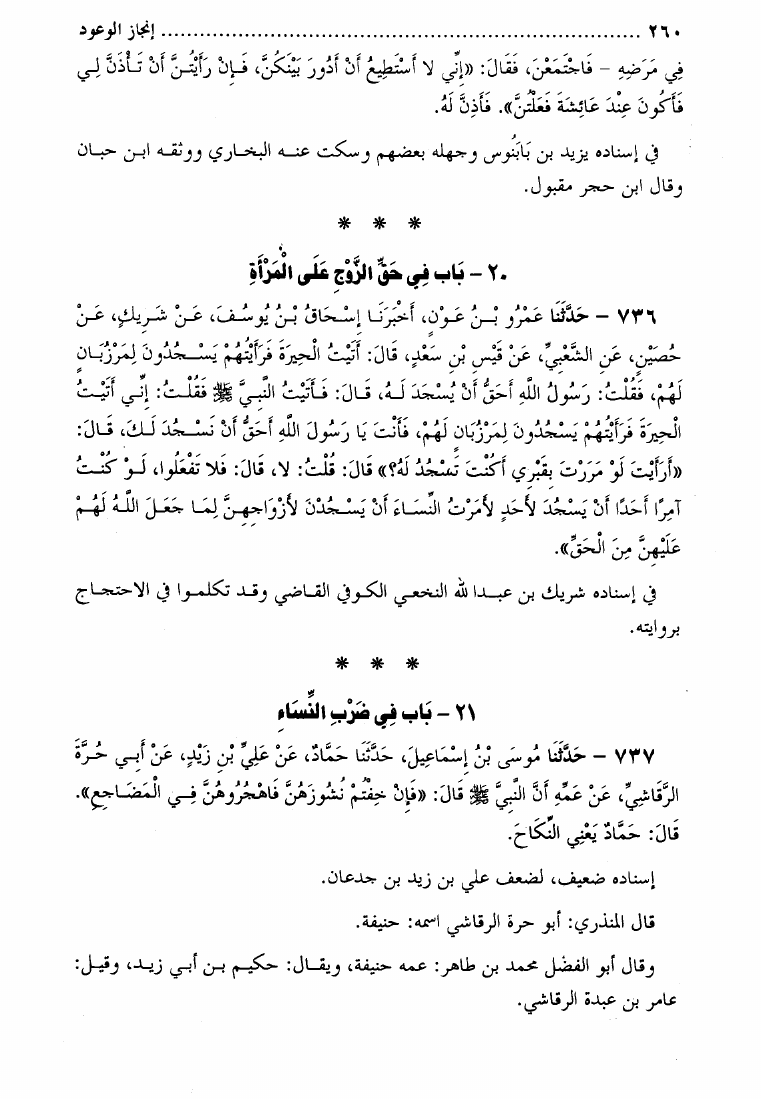 ٢٦٠ ........................................ إنجاز الوعود
فِي مَرَضِهِ – فَاجْتَمَعْنَ، فَقَالَ: «إِنِّي لا أَسْتَطِيعُ أَنْ أَدُورَ بَيْنَكُنَّ، فَإِنْ رَأَيْتُنَّ أَنْ تَأْذَنَّ لِي
فَأَكُونَ عِنْدَ عَائِشَةَ فَعَلْتُنَّ». فَأَذِنَّ لَهُ.
في إسناده يزيد بن بَابَنُوس وجهله بعضهم وسكت عنه البخاري ووثقه ابن حبان
وقال ابن حجر مقبول.
* * *
٢٠ – بَاب فِي حَقِّ الزَّوْجِ عَلَى الْمَرْأَةِ
٧٣٦ – حَدَّثَنَا عَمْرُو بْنُ عَوْنٍ، أَخْبَرَنَا إِسْحَاقُ بْنُ يُوسُفَ، عَنْ شَرِيكٍ، عَنْ
حُصَيْنٍ، عَنِ الشَّعْبِيِّ، عَنْ قَيْسِ بْنِ سَعْدٍ، قَالَ: أَتَيْتُ الْحِيرَةَ فَرَأَيْتُهُمْ يَسْجُدُونَ لِمَرْزُبَانٍ
لَهُمْ، فَقُلْتُ: رَسُولُ اللَّهِ أَحَقُّ أَنْ يُسْجَدَ لَهُ، قَالَ: فَأَتَيْتُ النَّبِيَّ ﷺ فَقُلْتُ: إِنِّي أَتَيْتُ
الْحِيرَةَ فَرَأَيْتُهُمْ يَسْجُدُونَ لِمَرْزُبَانٍ لَهُمْ، فَأَنْتَ يَا رَسُولَ اللَّهِ أَحَقُّ أَنْ نَسْجُدَ لَكَ، قَالَ:
«أَرَأَيْتَ لَوْ مَرَرْتَ بِقَبْرِي أَكُنْتَ تَسْجُدُ لَهُ؟» قَالَ: قُلْتُ: لا، قَالَ: فَلا تَفْعَلُوا، لَوْ كُنْتُ
آمِرًا أَحَدًا أَنْ يَسْجُدَ لأَحَدٍ لأَمَرْتُ النِّسَاءَ أَنْ يَسْجُدْنَ لأَزْوَاجِهِنَّ لِمَا جَعَلَ اللَّهُ لَهُمْ
عَلَيْهِنَّ مِنَ الْحَقِّ».
في إسناده شريك بن عبدا لله النخعي الكوفي القاضي وقد تكلموا في الاحتجاج
بروايته.
* * *
٢١ – بَاب فِي ضَرْبِ النِّسَاءِ
٧٣٧ – حَدَّثَنَا مُوسَى بْنُ إِسْمَاعِيلَ، حَدَّثَنَا حَمَّادٌ، عَنْ عَلِيِّ بْنِ زَيْدٍ، عَنْ أَبِي حُرَّةَ
الرَّقَاشِيِّ، عَنْ عَمِّهِ أَنَّ النَّبِيَّ ﷺ قَالَ: «فَإِنْ خِفْتُمْ نُشُوزَهُنَّ فَاهْجُرُوهُنَّ فِي الْمَضَاجِعِ».
قَالَ: حَمَّادٌ يَعْنِي النِّكَاحَ.
إسناده ضعيف، لضعف علي بن زيد بن جدعان.
قال المنذري: أبو حرة الرقاشي اسمه: حنيفة.
وقال أبو الفضل محمد بن طاهر: عمه حنيفة، ويقال: حكيم بن أبي زيد، وقيل:
عامر بن عبدة الرقاشي.